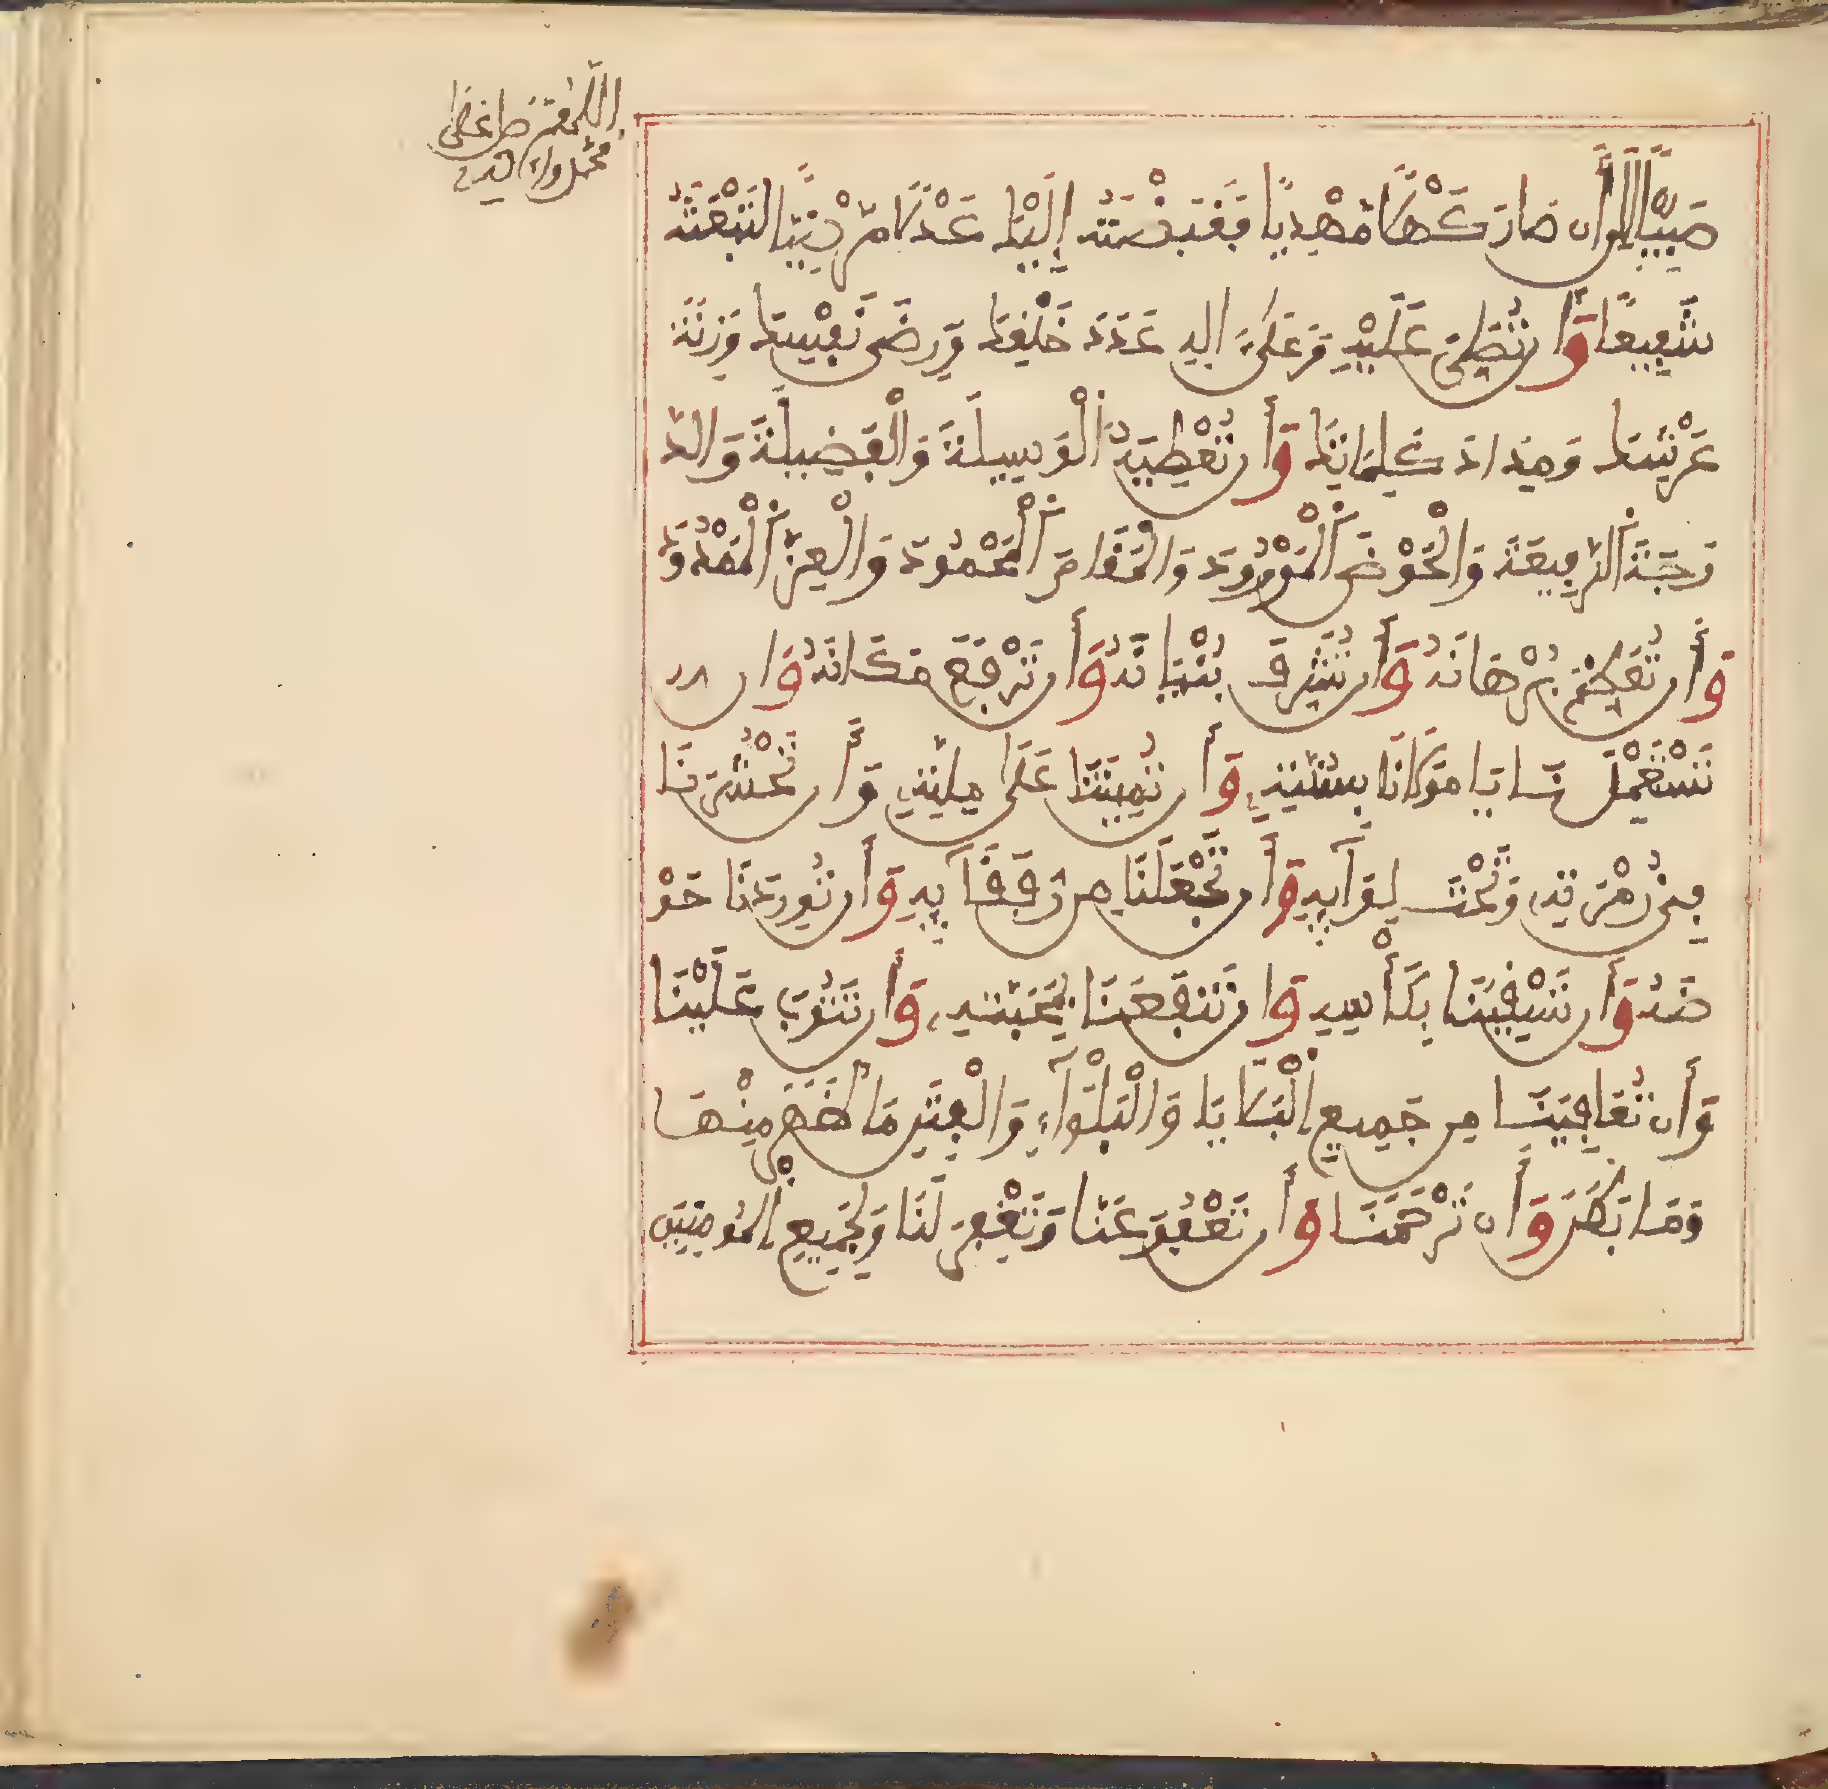 اللهم صل على
محمد وا
صَبِيّاً إِلَى أَن صَارَ كَهْلًا مَهْدِيّاً فَقَبَضْتَهُ إِلَيْكَ عَدْلًا مَرْضِيّاً لِتَبْعَثَهُ
شَفِيعاً وَأَن تُصَلِّيَ عَلَيْهِ وَعَلَىٰ ءَالِهِ عَدَدَ خَلْفِكَ وَرِضَى نَفْسِكَ وَزِنَةَ
عَرْشِكَ وَمِدَادَ كَلِمَاتِكَ وَأَن تُعْطِيَهُ الْوَسِيلَةَ وَالْفَضِيلَةَ وَالدَّ
رَجَةَ الرَّفِيعَةَ وَالْحَوْضَ الْمَوْرُودَ وَالْمَقَامَ الْمَحْمُودَ وَالْعِزَّ الْمَمْدُودَ
وَأَن تُعَظِّمَ بُرْهَانَهُ وَأَن تُشَرِّفَ بُنْيَانَهُ وَأَن تَرْفَعَ مَكَانَهُ وَأَن
تَسْتَعْمِلَنَا يَا مَوْلَانَا بِسُنَّتِهِ وَأَن تُمِيتَنَا عَلَى مِلَّتِهِ وَأَن تَحْشُرَنَا
فِي زُمْرَتِهِ وَتَحْتَ لِوَآئِهِ وَأَن تَجْعَلَنَا مِن رُفَقَآئِهِ وَأَن تُورِدَنَا حَوْ
ضَهُ وَأَن تَسْقِيَنَا بِكَأْسِهِ وَأَن تَنفَعَنَا بِمَحَبَّتِهِ وَأَن تَتُوبَ عَلَيْنَا
وَأَن تُعَافِيَنَا مِن جَمِيعِ الْبَلَايَا وَالْبَلْوَآءِ وَالْفِتَنِ مَا ظَهَرَ مِنْهَا
وَمَا بَطَنَ وَأَن تَرْحَمَنَا وَأَن تَعْفُوَ عَنَّا وَتَغْفِرَ لَنَا وَلِجَمِيعِ الْمُومِنِينَ